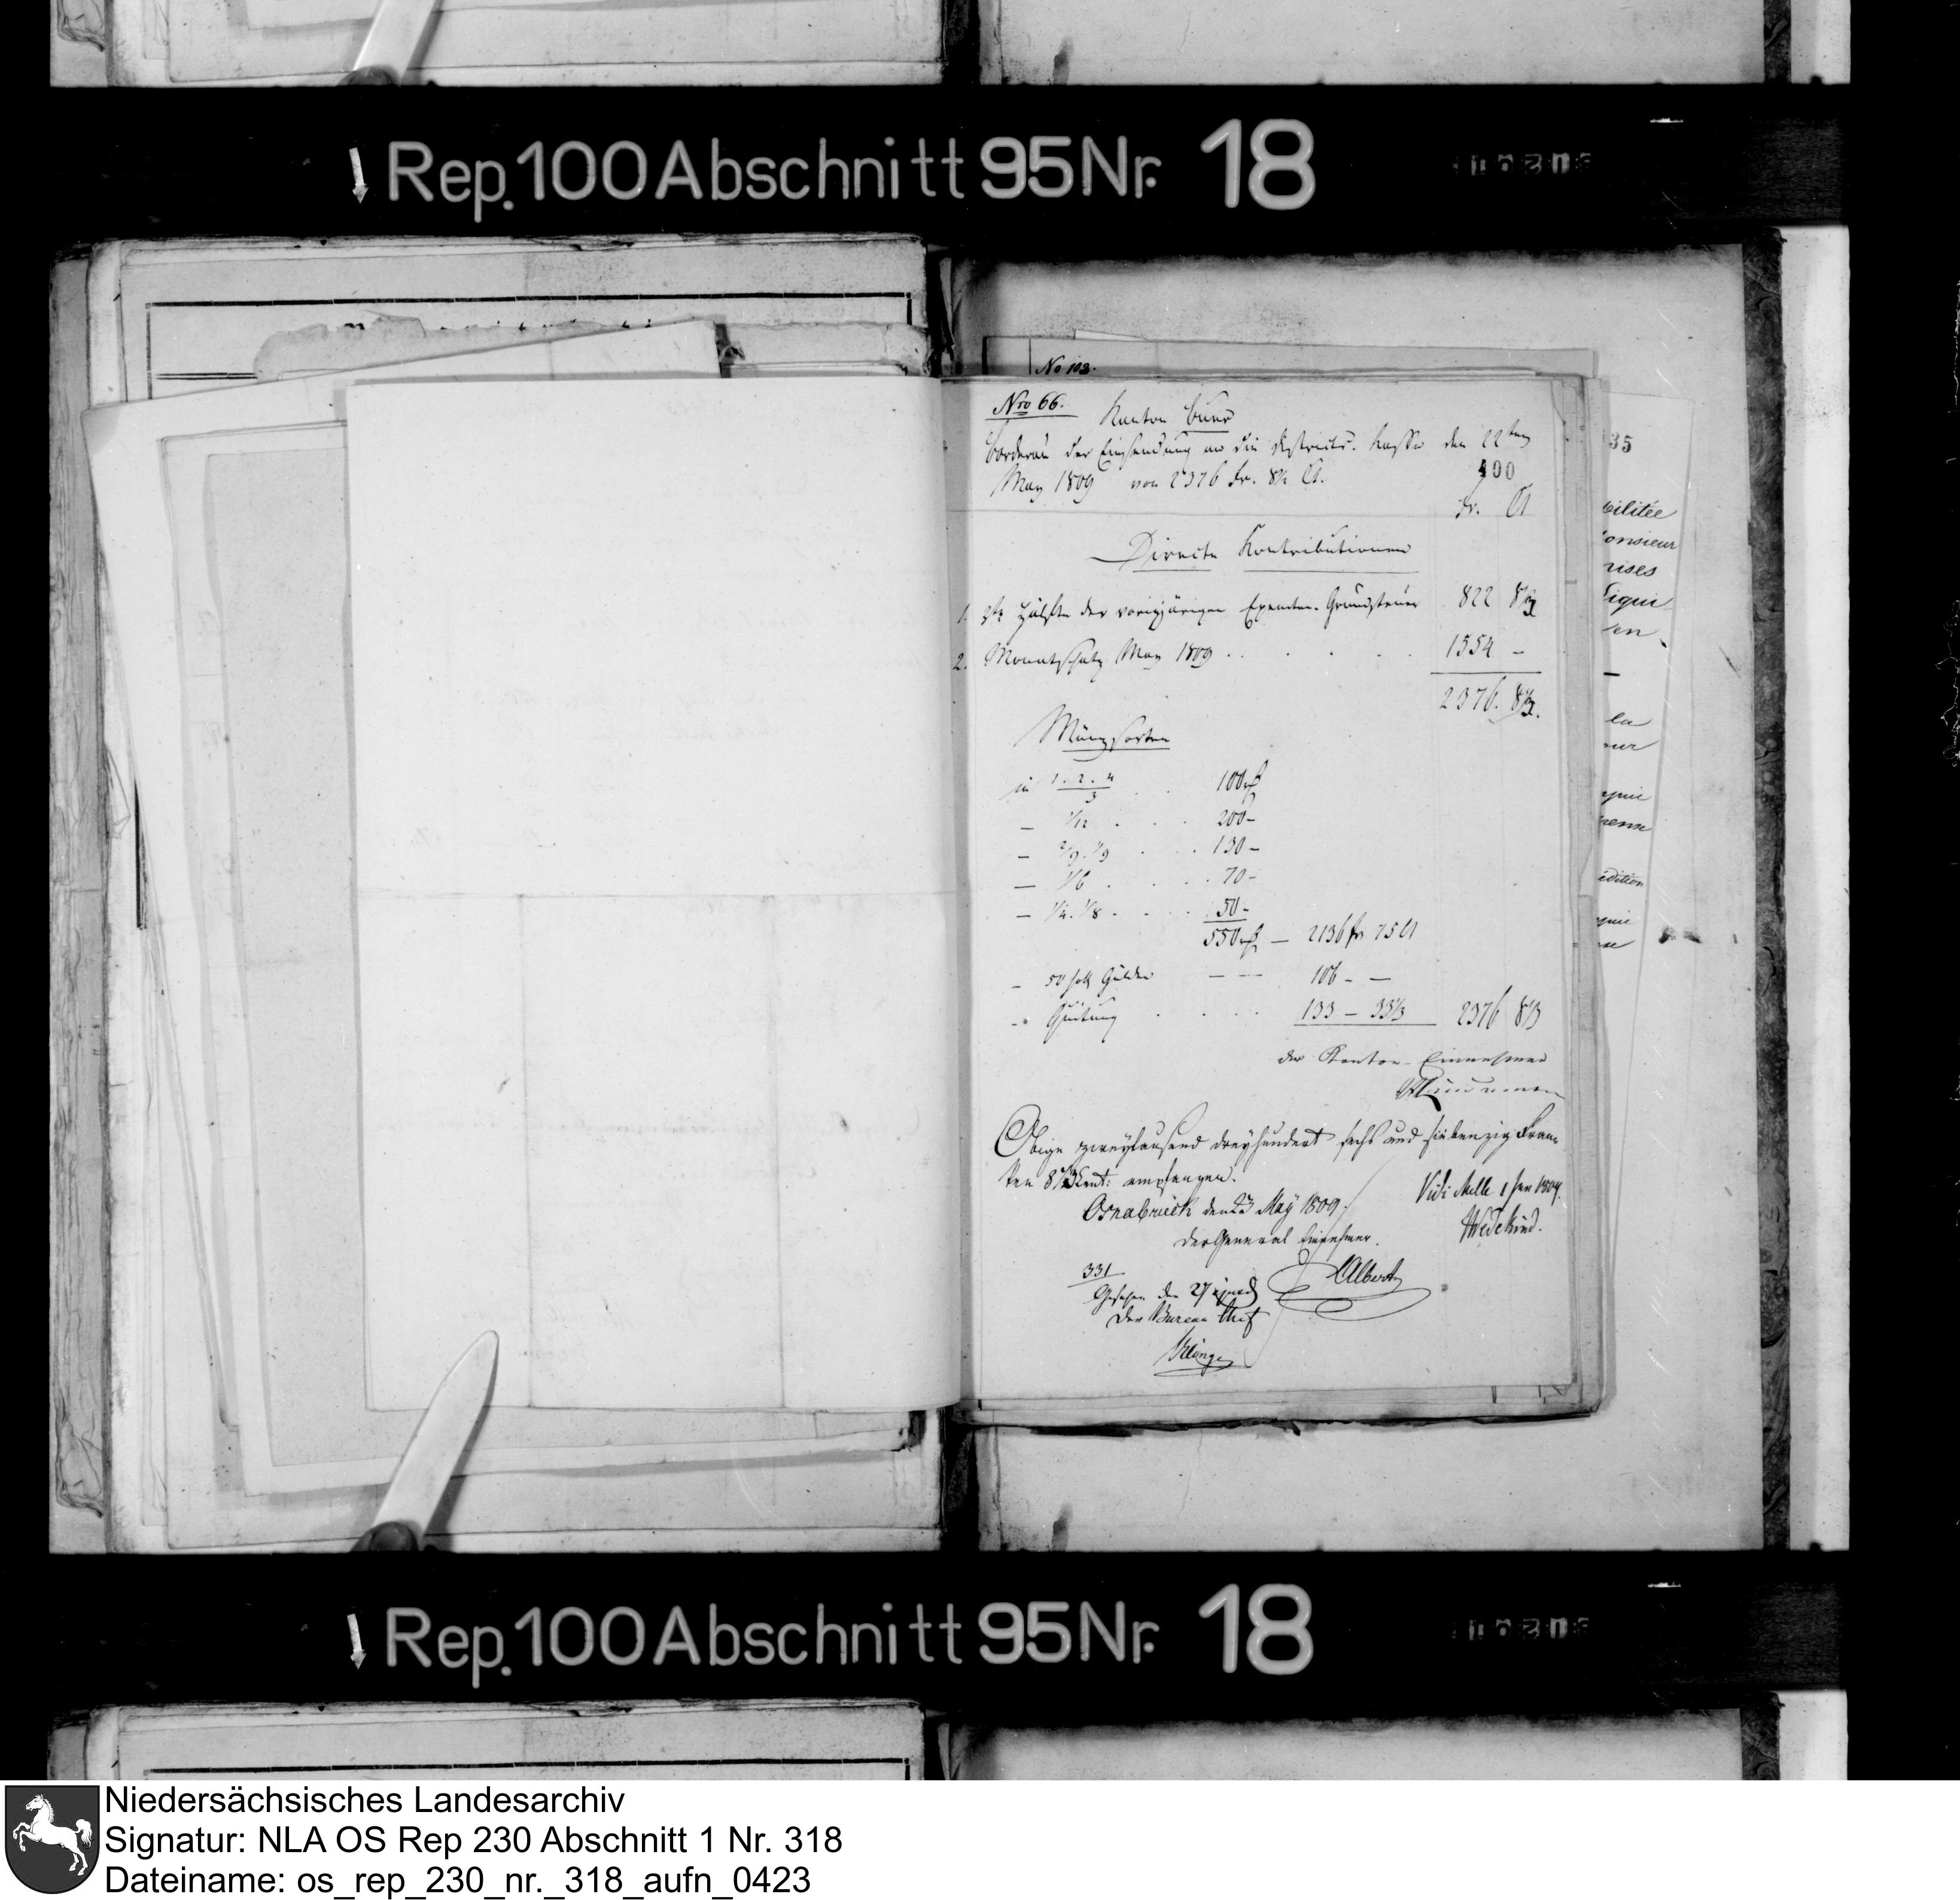 Rep. 100 Abschnitt 95 Nr. 18
No 103.
Nro 66.
Kanton Buer
Borderau der Einsendung an die Districts-Kasse den 22ten
May 1809 von 2376 Fr. 8⅓ Ct.
400
Fr. Ct
Directe Kontributionen
1. 2te Hälfte der vorigjärigen Exemten-Grundsteuer 822 8⅓
2. Monatschatz May 1809 . . . . . 1554 –
2376. 8⅓.
Münzsorten
in 1.2.4/3 . . 100 rf
– 1/12 . . . 200 –
– 2/9. 1/9 . . 130 –
– 1/6 . . . 70 –
– 1/4. 1/8 . . . 50 –
550 rf – 2136 fr 75 Ct
– 50 holl Gulden – – – 106 – –
– Quitung . . . . 133 – 33⅓ 2376 8⅓
der Kanton-Einnehmer
Obige zweytausend dreyhundert sechs und siebenzig Fran-
ken 8⅓ Cent: empfangen.
Osnabrück den 23 May 1809.
Der General Einnehmer.
Vidi Melle 1 Jun 1809.
Wedekind.
331
Gesehen den 27 ejusd
Der Bureau Chef
35
bilitée
onsieur
rises
Liqui
en
la
our
edition
Rep. 100 Abschnitt 95 Nr. 18
Niedersächsisches Landesarchiv
Signatur: NLA OS Rep 230 Abschnitt 1 Nr. 318
Dateiname: os_rep_230_nr._318_aufn_0423